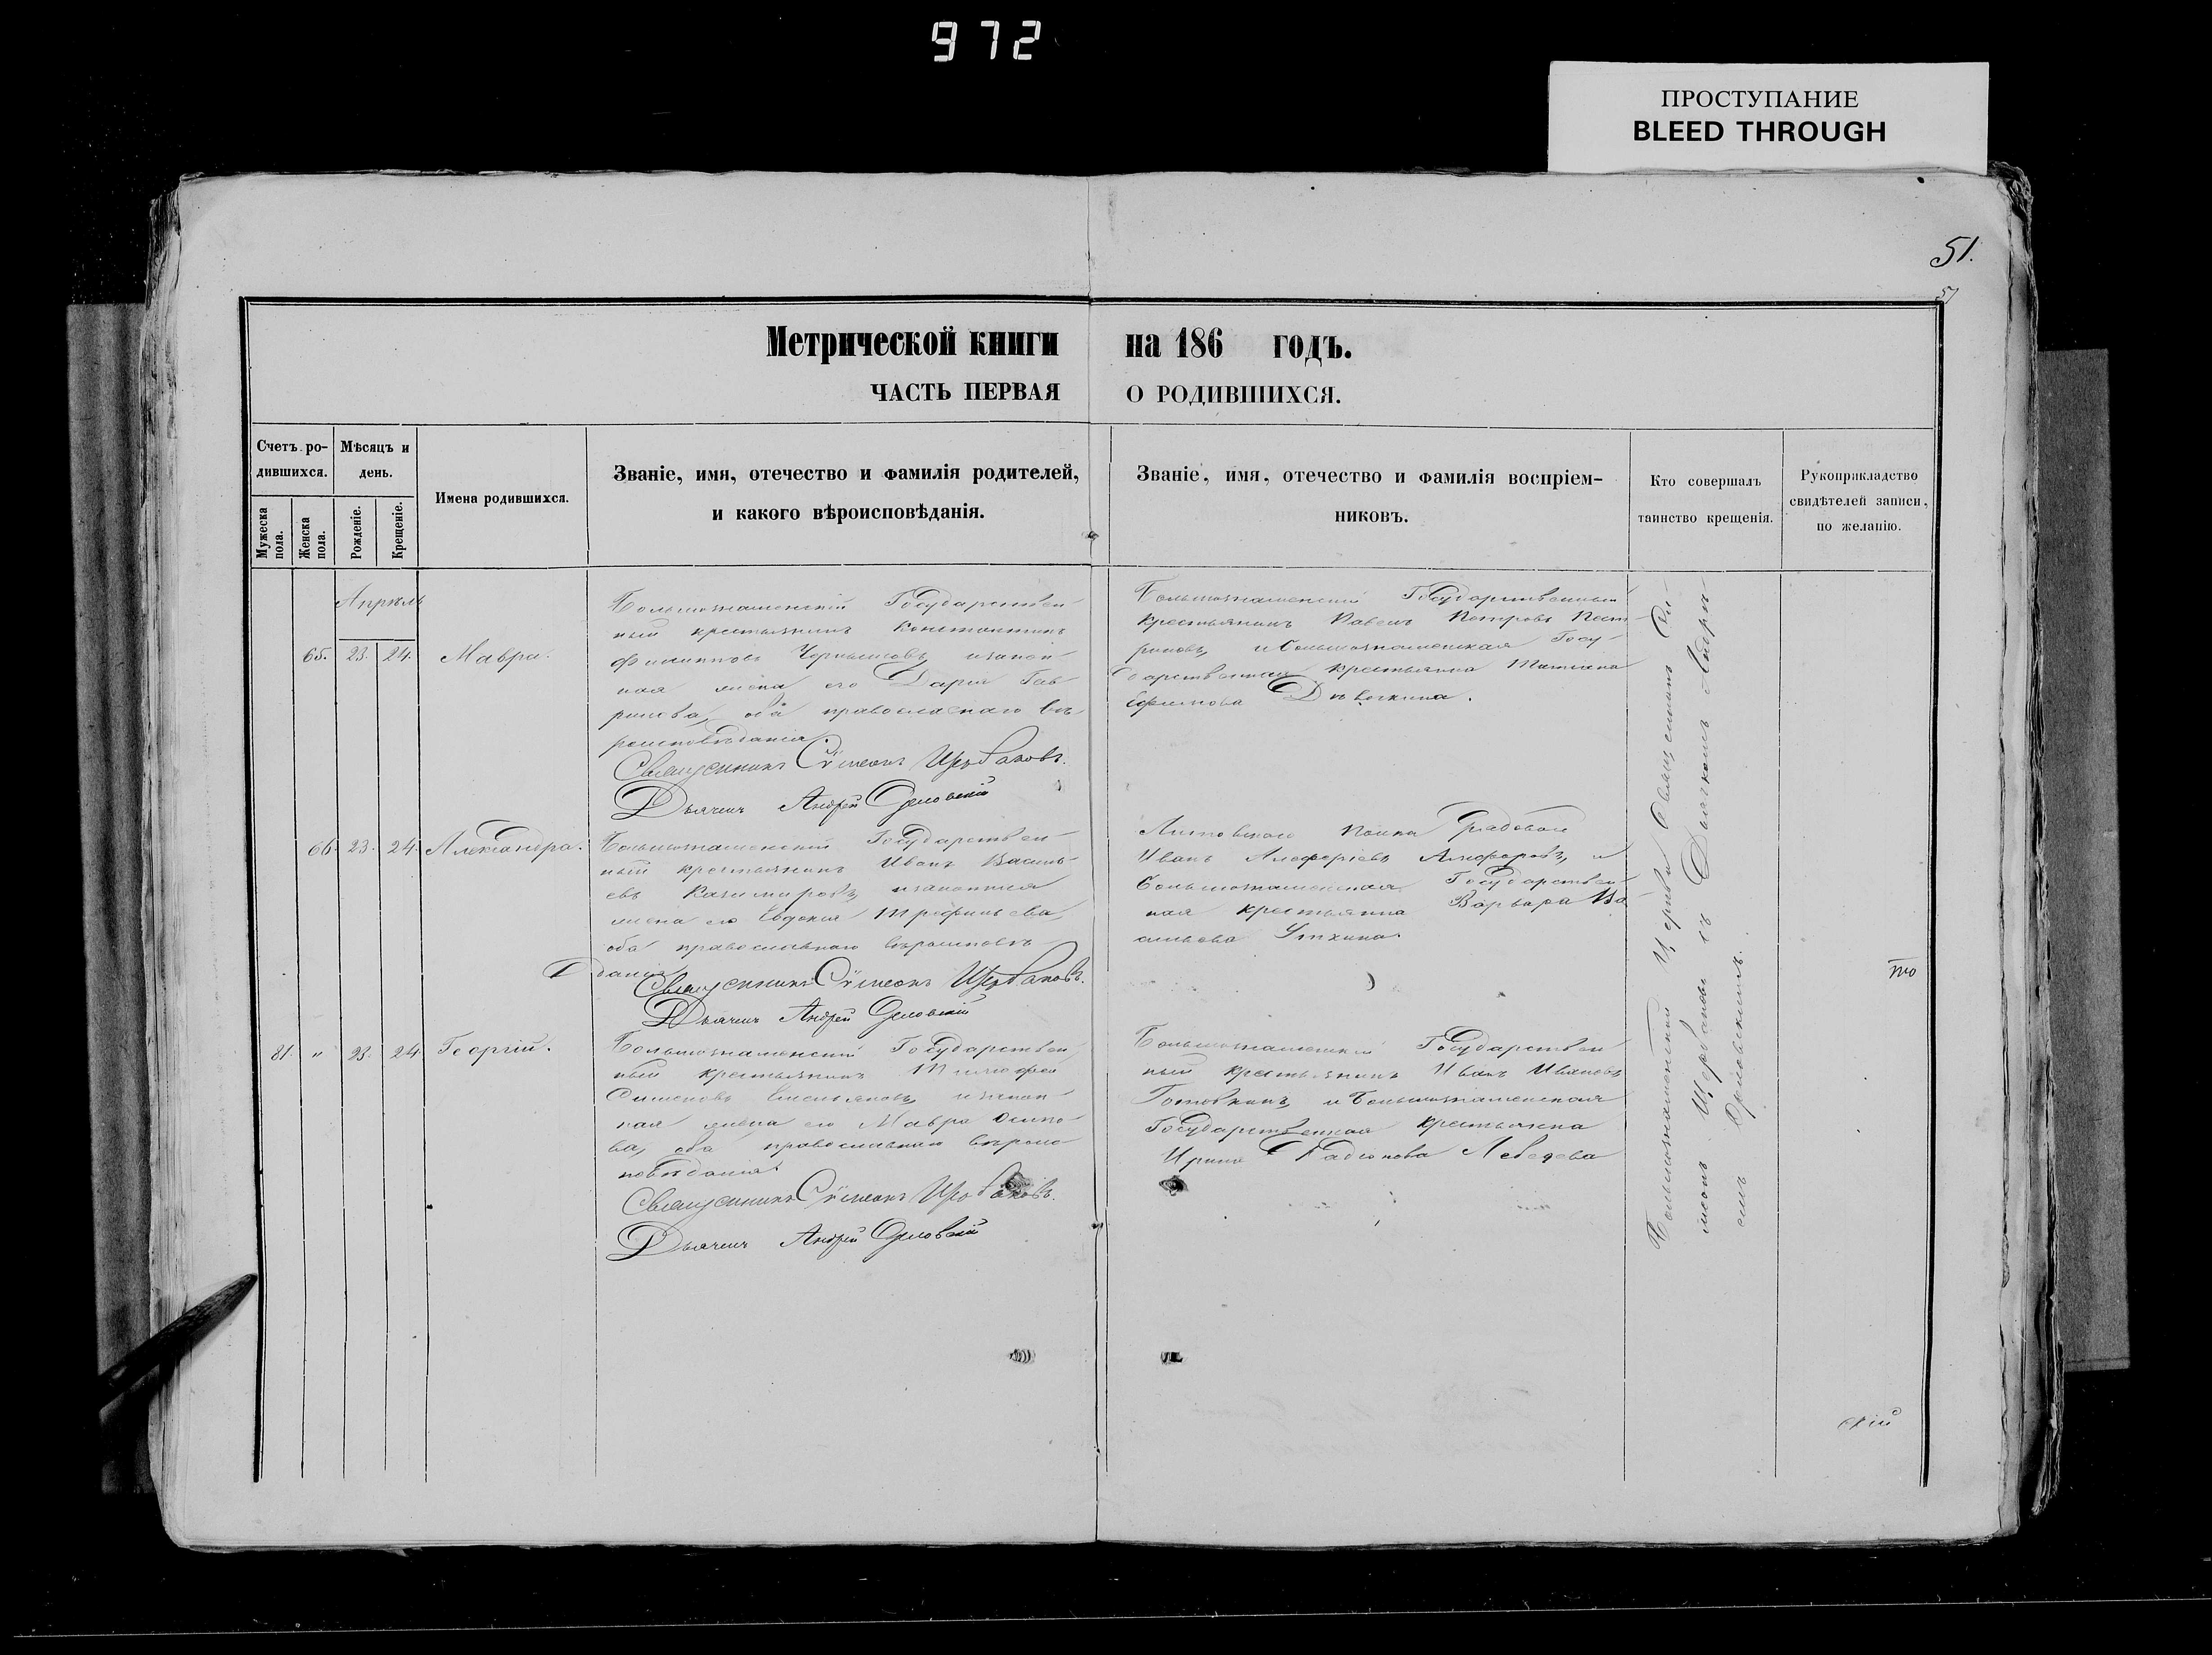 972
ПРОСТУПАНИЕ
BLEED THROUGH
51.
51
Метрической книги на 186 годъ.
ЧАСТЬ ПЕРВАЯ О РОДИВШИХСЯ.
Счетъ ро-
дившихся.
Мужеска
пола.
Женска
пола.
Мѣсяцъ и
день.
Рожденіе.
Крещеніе.
Имена родившихся.
Званіе, имя, отечество и фамилія родителей,
и какого вѣроисповѣданія.
Званіе, имя, отечество и фамилія воспріем-
никовъ.
Кто совершалъ
таинство крещенія.
Рукоприкладство
свидѣтелей записи,
по желанію.
Апрѣль
65. 23. 24. Мавра.
Большознаменскій Государствен-
ный крестьянинъ Константинъ
Филипповъ Чернышовъ, и закон-
ная жена его Дарія Гав-
рилова, оба православнаго вѣ-
роисповѣданія.
Священникъ Сѵмеонъ Щербаковъ.
Дьячекъ Андрей Орловскій
Большознаменскій Государственный
крестьянинъ Павелъ Петровъ
и большознаменская Госу-
дарственная крестьянка Татіана
Ефимова
66. 23. 24. Александра.
Большознаменскій Государствен-
ный крестьянинъ Иванъ Василь-
евъ Казимировъ, и законная
жена его Евдокія Трофимьева,
оба православнаго вѣроисповѣ-
данія.
Священникъ Сѵмеонъ Щербаковъ.
Дьячекъ Андрей Орловскій
Литовскаго полка Рядовой
Иванъ и
большознаменская Государствен-
ная крестьянка Варвара Ва-
сильева Уткина.
81. " 23. 24. Георгій.
Большознаменскій Государствен-
ный крестьянинъ Тимофей
Симеоновъ Емельяновъ, и закон-
ная жена его Мавра Осипо-
ва, оба православнаго вѣроис-
повѣданія.
Священникъ Сѵмеонъ Щербаковъ.
Дьячекъ Андрей Орловскій
Большознаменскій Государствен-
ный крестьянинъ Иванъ Ивановъ
и большознаменская
Государственная крестьянка
Ирина Радіонова Лебедева
Большознаменской Церкви Священникъ Си-
меонъ Щербаковъ съ Дьячкомъ Андре-
емъ Орловскимъ.